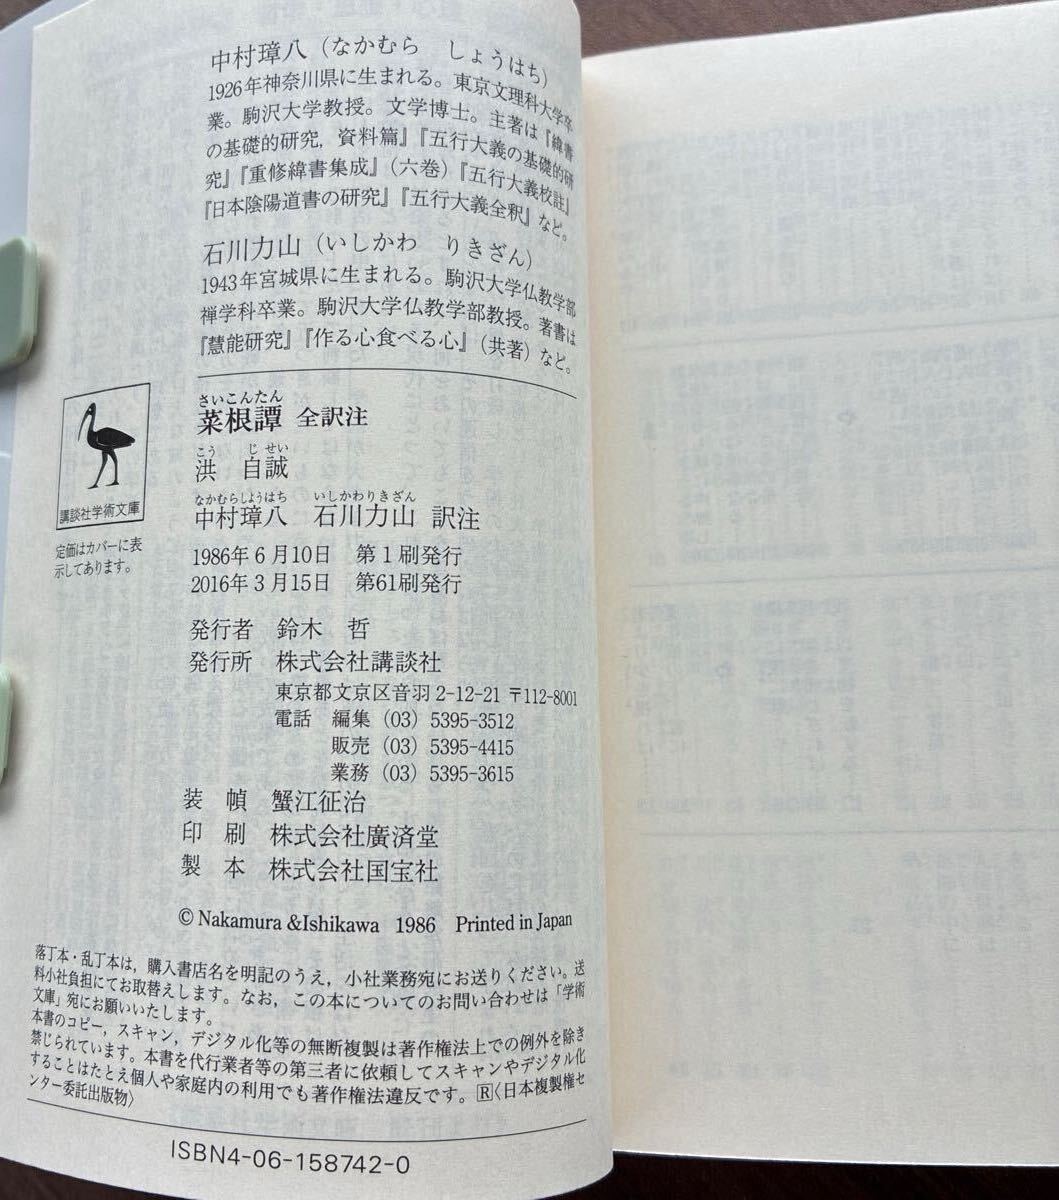 中村璋八(なかむら しょうはち)
1926年神奈川県に生まれる。東京文理科大学卒
業。駒沢大学教授。文学博士。主著は『緯書
の基礎的研究,資料篇』『五行大義の基礎的研
究』『重修緯書集成』(六巻)『五行大義校註』
『日本陰陽道書の研究』『五行大義全釈』など。
石川力山(いしかわ りきざん)
1943年宮城県に生まれる。駒沢大学仏教学部
禅学科卒業。駒沢大学仏教学部教授。著書は
『慧能研究』『作る心食べる心』(共著)など。
さいこんたん
菜根譚 全訳注
こう じせい
洪 自誠
なかむらしょうはち いしかわりきざん
中村璋八 石川力山 訳注
1986年6月10日 第1刷発行
2016年3月15日 第61刷発行
発行者 鈴木 哲
発行所 株式会社講談社
東京都文京区音羽 2-12-21 〒112-8001
電話 編集 (03) 5395-3512
販売 (03) 5395-4415
業務 (03) 5395-3615
装 幀 蟹江征治
印 刷 株式会社廣済堂
製 本 株式会社国宝社
© Nakamura &Ishikawa 1986 Printed in Japan
講談社学術文庫
定価はカバーに表
示してあります。
落丁本・乱丁本は,購入書店名を明記のうえ,小社業務宛にお送りください。送
料小社負担にてお取替えします。なお,この本についてのお問い合わせは「学術
文庫」宛にお願いいたします。
本書のコピー,スキャン,デジタル化等の無断複製は著作権法上での例外を除き
禁じられています。本書を代行業者等の第三者に依頼してスキャンやデジタル化
することはたとえ個人や家庭内の利用でも著作権法違反です。Ⓡ〈日本複製権セ
ンター委託出版物〉
ISBN4-06-158742-0